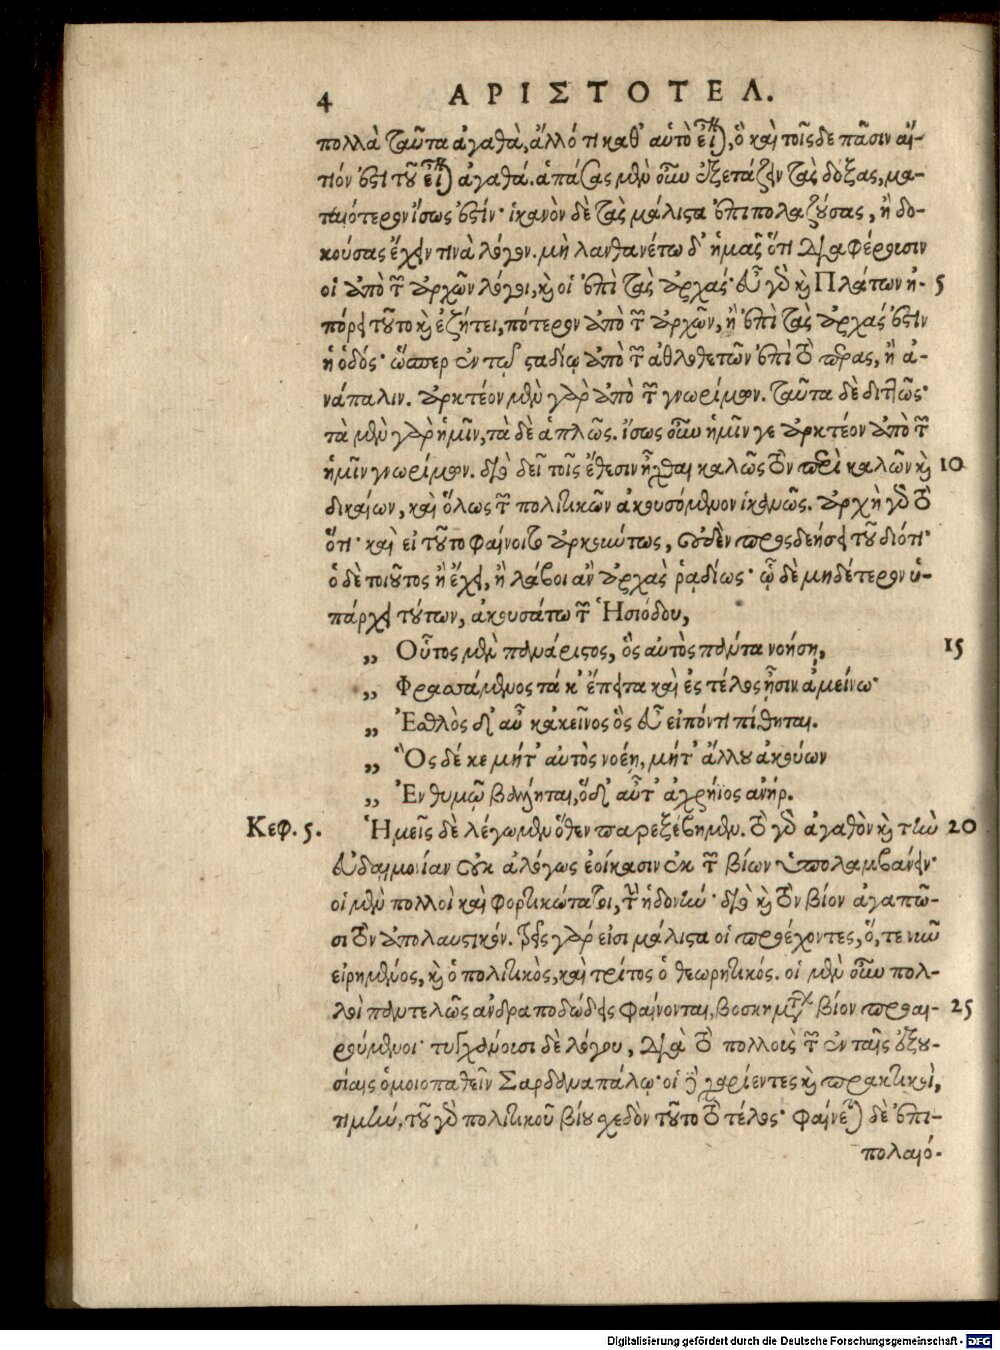 4 ΑΡΙΣΤΟΤΕΛ.
πολλὰ ταῦτα ἀγαθὰ, ἄλλό τι καθ’ αὑτὸ εἶναι, ὃ καὶ τοῖσδε πᾶσιν αἴ-
τιόν ἐστι τοῦ εἶναι ἀγαθά. ἁπάσας μὲν οὖν ἐξετάζειν τὰς δόξας, μα-
ταιότερον ἴσως ἐστίν· ἱκανὸν δὲ τὰς μάλιστα ἐπιπολαζούσας, ἢ δο-
κούσας ἔχειν τινὰ λόγον. μὴ λανθανέτω δ’ ἡμᾶς ὅτι διαφέρουσιν
οἱ ἀπὸ τῶν ἀρχῶν λόγοι, καὶ οἱ ἐπὶ τὰς ἀρχάς· εὖ γὰρ καὶ Πλάτων ἠ- 5
πόρει τοῦτο καὶ ἐζήτει, πότερον ἀπὸ τῶν ἀρχῶν, ἢ ἐπὶ τὰς ἀρχάς ἐστιν
ἡ ὁδός· ὥσπερ ἐν τῷ σταδίῳ ἀπὸ τῶν ἀθλοθετῶν ἐπὶ τὸ πέρας, ἢ ἀ-
νάπαλιν. ἀρκτέον μὲν γὰρ ἀπὸ τῶν γνωρίμων. ταῦτα δὲ διττῶς·
τὰ μὲν γὰρ ἡμῖν, τὰ δὲ ἁπλῶς. ἴσως οὖν ἡμῖν γε ἀρκτέον ἀπὸ τῶν
ἡμῖν γνωρίμων. διὸ δεῖ τοῖς ἔθεσιν ἦχθαι καλῶς τὸν περὶ καλῶν καὶ 10
δικαίων, καὶ ὅλως τῶν πολιτικῶν ἀκουσόμενον ἱκανῶς. ἀρχὴ γὰρ τὸ
ὅτι· καὶ εἰ τοῦτο φαίνοιτο ἀρκούντως, οὐδὲν προσδεήσει τοῦ διότι·
ὁ δὲ τοιοῦτος ἢ ἔχει, ἢ λάβοι ἂν ἀρχὰς ῥᾳδίως· ᾧ δὲ μηδέτερον ὑ-
πάρχει τούτων, ἀκουσάτω τῶν Ἡσιόδου,
„ Οὗτος μὲν πανάριστος, ὃς αὐτὸς πάντα νοήσῃ, 15
„ Φρασσάμενος τά κ’ ἔπειτα καὶ ἐς τέλος ᾖσιν ἀμείνω·
„ Ἐσθλὸς δ’ αὖ κἀκεῖνος ὃς εὖ εἰπόντι πίθηται.
„ Ὃς δέ κε μήτ’ αὐτὸς νοέῃ, μήτ’ ἄλλου ἀκούων
„ Ἐν θυμῷ βάλληται, ὅδ’ αὖτ’ ἀχρήϊος ἀνήρ.
Κεφ. 5. Ἡμεῖς δὲ λέγωμεν ὅθεν παρεξέβημεν. τὸ γὰρ ἀγαθὸν καὶ τὴν 20
εὐδαιμονίαν οὐκ ἀλόγως ἐοίκασιν ἐκ τῶν βίων ὑπολαμβάνειν·
οἱ μὲν πολλοὶ καὶ φορτικώτατοι, τὴν ἡδονήν· διὸ καὶ τὸν βίον ἀγαπῶ-
σι τὸν ἀπολαυστικόν. τρεῖς γάρ εἰσι μάλιστα οἱ προέχοντες, ὅ, τε νῦν
εἰρημένος, καὶ ὁ πολιτικὸς, καὶ τρίτος ὁ θεωρητικός. οἱ μὲν οὖν πολ-
λοὶ παντελῶς ἀνδραποδώδεις φαίνονται, βοσκημάτων βίον προαι- 25
ρούμενοι· τυγχάνουσι δὲ λόγου, διὰ τὸ πολλοὺς τῶν ἐν ταῖς ἐξου-
σίαις ὁμοιοπαθεῖν Σαρδαναπάλῳ· οἱ δὲ χαρίεντες καὶ πρακτικοὶ,
τιμὴν, τοῦ γὰρ πολιτικοῦ βίου σχεδὸν τοῦτο τὸ τέλος· φαίνεται δὲ ἐπι-
πολαιό-
Digitalisierung gefördert durch die Deutsche Forschungsgemeinschaft - DFG